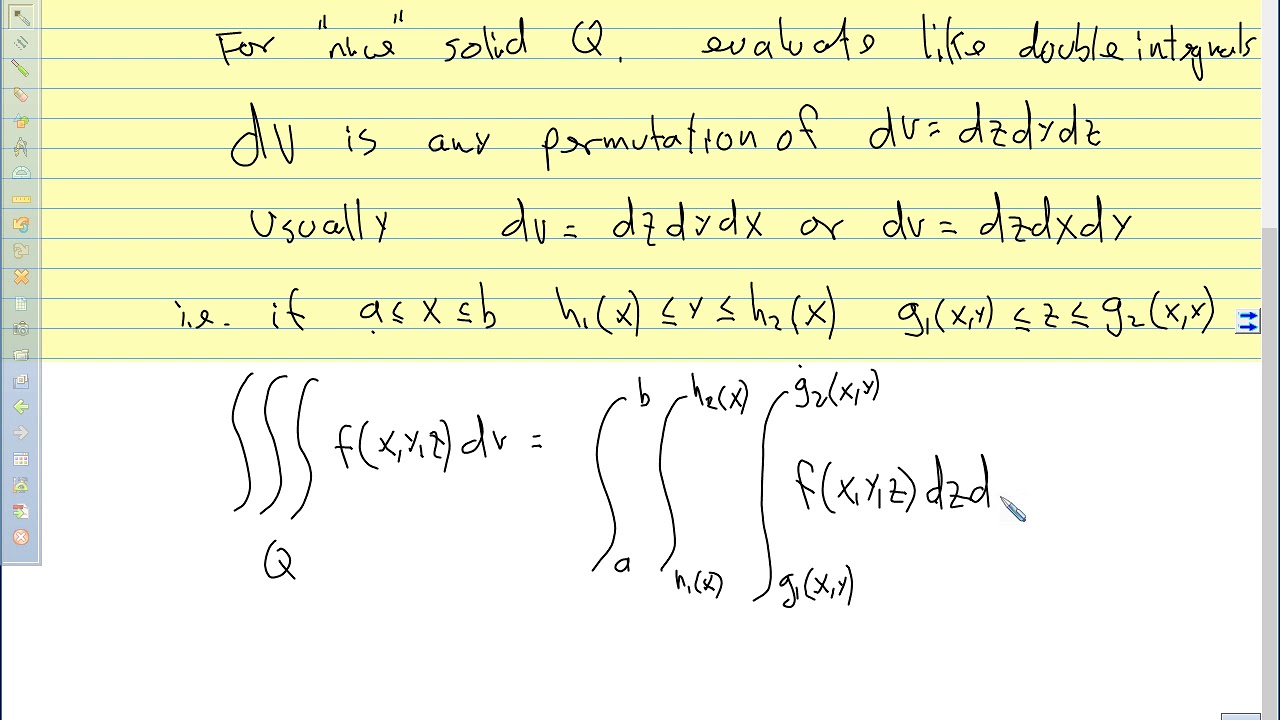 For "nice" solid Q. evaluate like double integrals
dV is any permutation of dv = dzdydz
Usually dv = dzdydx or dv = dzdxdy
i.e. if a ≤ x ≤ b h₁(x) ≤ y ≤ h₂(x) g₁(x,y) ≤ z ≤ g₂(x,y)
∭_Q f(x,y,z) dv = ∫_a^b ∫_{h₁(x)}^{h₂(x)} ∫_{g₁(x,y)}^{g₂(x,y)} f(x,y,z) dzd